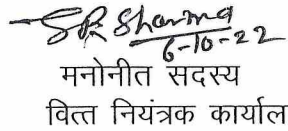 SR Sharma
6-10-22
मनोनीत सदस्य
वित्त नियंत्रक कार्याल